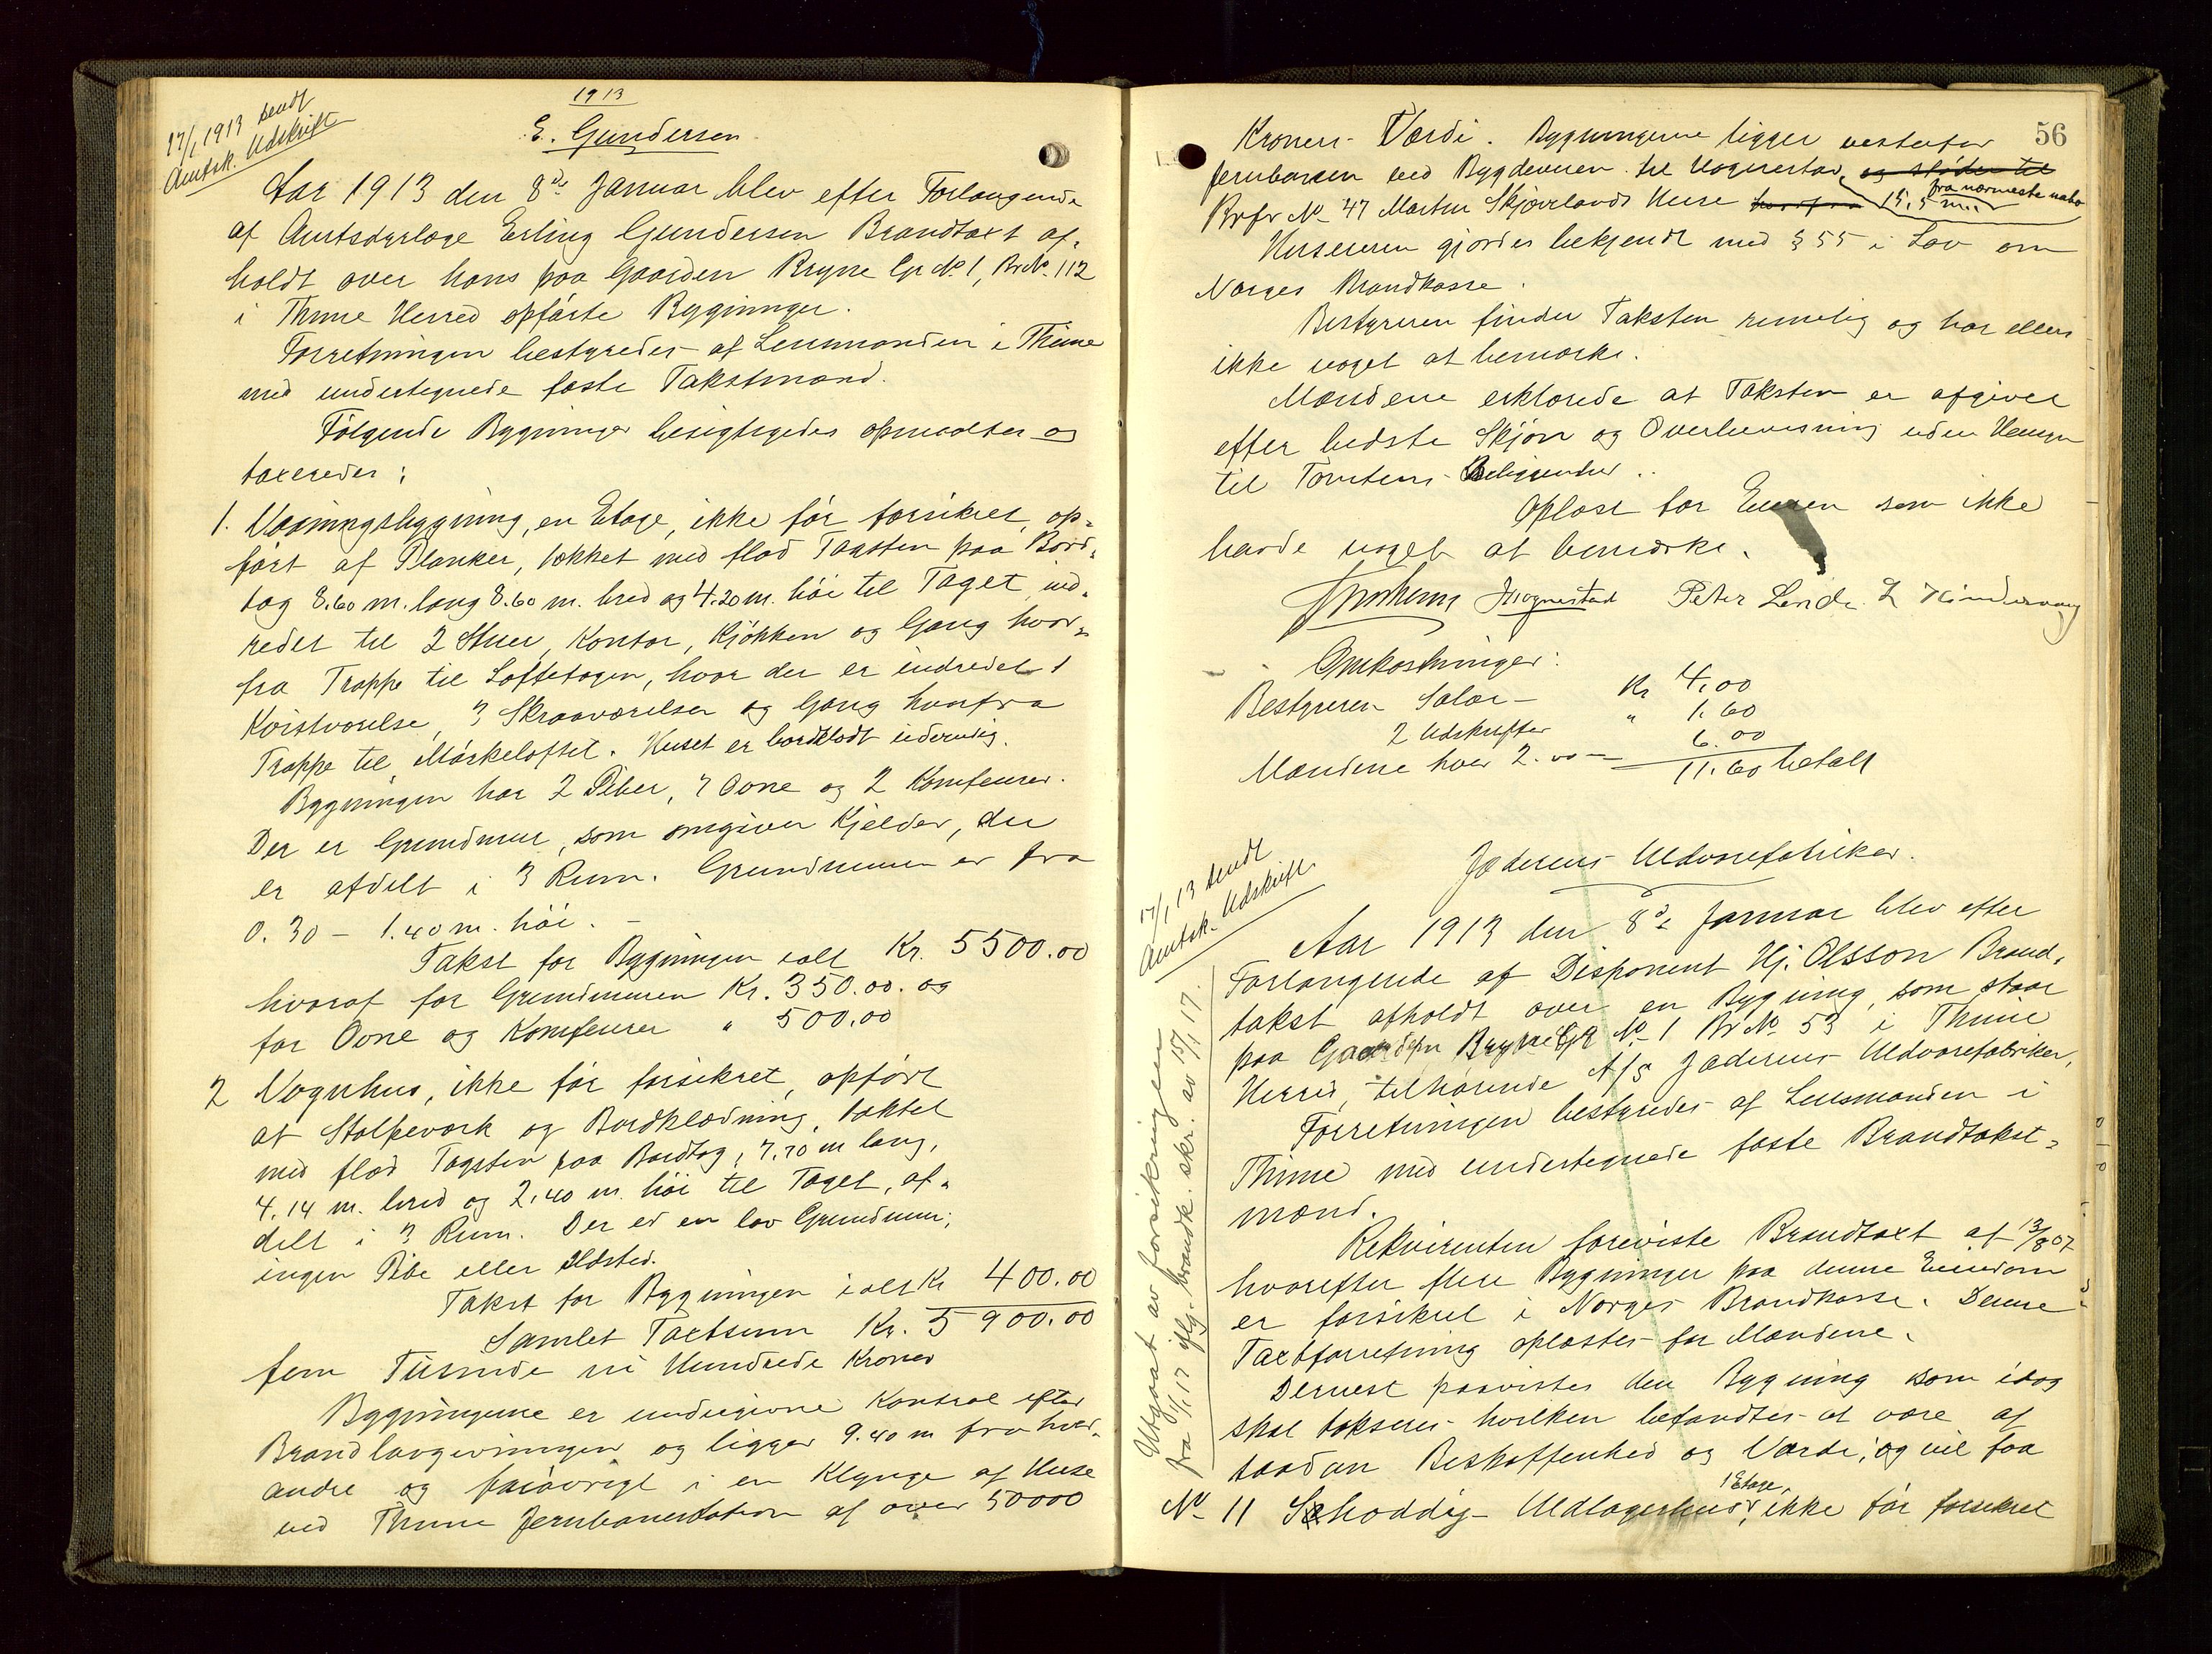 17/1 1913 sendt
Amtsk. Udskrift
1913
E. Gundersen
Aar 1913 den 8de Januar blev efter Forlangende
af Amtsdyrlæge Erling Gundersen Brandtaxt af-
holdt over hans paa Gaarden Bryne Gr No. 1, Br No. 112
i Thime Herred opførte Bygninger.
Forretningen bestyredes af Lensmanden i Thime
med undertegnede faste Takstmænd.
Følgende Bygninger besigtigedes opmaaltes og
taxeredes:
1. Vaaningsbygning, en Etage, ikke før forsikret, op-
ført af Planker, tækket med flad Tagsten paa Bord-
tag 8.60 m. lang 8.60 m. bred og 4.20 m. høi til Taget, ind-
redet til 2 Stuer, Kontor, Kjøkken og Gang hvor-
fra Trappe til Loftetagen, hvor der er indredet 1
Kvistværelse, 3 Skraaværelser og Gang hvorfra
Trappe til Mørkeloftet. Huset er bordklædt udvendig.
Bygningen har 2 Piber, 7 Ovne og 2 Komfeurer.
Der er Grundmur, som omgiver Kjelder, der
er afdelt i 3 Rum. Grundmuren er fra
0.30 – 1.40 m. høi. –
Takst for Bygningen ialt Kr. 5500.00
hvoraf for Grundmuren Kr. 350.00. og
for Ovne og Komfeurer " 500.00
2 Vognhus, ikke før forsikret, opført
af Stolpeværk og Bordklædning, tæktet
med flad Tagsten paa Bordtag, 7.70 m lang,
4.14 m. bred og 2.40 m. høi til Taget, af-
delt i 3 Rum. Der er en lav Grundmur,
ingen Pibe eller Ildsted.
Takst for Bygningen ialt Kr 400.00
Samlet Taxtsum Kr. 5900.00
fem Tusinde ni Hundrede Kroner
Bygningerne er undergivne Kontrol efter
Brandlovgivningen og ligger 9.40 m fra hver-
andre og forøvrigt i en Klynge af Huse
ved Thime Jernbanestation af over 50000
56
Kroners Værdi. Bygningerne ligger vestenfor
Jernbanen ved Bygdeveien til Vognestad, og støder til
fra nærmeste nabo
Br No 47 Martin Skjævelands Huse 15.5 m.
Huseieren gjordes bekjendt med § 55 i Lov om
Norges Brandkasse.
Bestyreren finder Taksten rimelig og har ellers
ikke noget at bemærke.
Mændene erklærede at Taksten er afgivet
efter bedste Skjøn og Overbevisning uden Hensyn
til Tomtens Beliggenhed.
Oplæst for Eieren som ikke
havde noget at bemærke.
J Hognestad Peter Lende
Omkostninger:
Bestyreren Salær – Kr 4.00
2 Udskrifter " 1.60
Mændene hver 2.00 – 6.00
11.60 betalt
17/1 13 sendt
Amtsk. Udskrift.
Jæderens Uldvarefabriker.
Aar 1913 den 8de Januar blev efter
Forlangende af Disponent Hj. Olsson Brand-
takst afholdt over en Bygning, som staar
paa Gaarden Bryne Gr No 1 Br No 53 i Thime
Herred, tilhørende A/S Jæderens Uldvarefabriker,
Forretningen bestyredes af Lensmanden i
Thime med undertegnede faste Brandtakst-
mænd.
Rekvirenten foreviste Brandtaxt af 13/8 07
hvorefter flere Bygninger paa denne Eiendom
er forsikret i Norges Brandkasse. Denne
Taxtforretning oplæstes for Mændene.
Dernæst paavistes den Bygning som idag
skal takseres hvilken befandtes at være af
saadan Beskaffenhed og Værdi, og vil faa
No 11 Shoddy- Uldlagerhus, 1 Etage, ikke før forsikret
Utgaat av forsikringen
fra 1/1 17 iflg. brandk. skr. av 15/1 17.